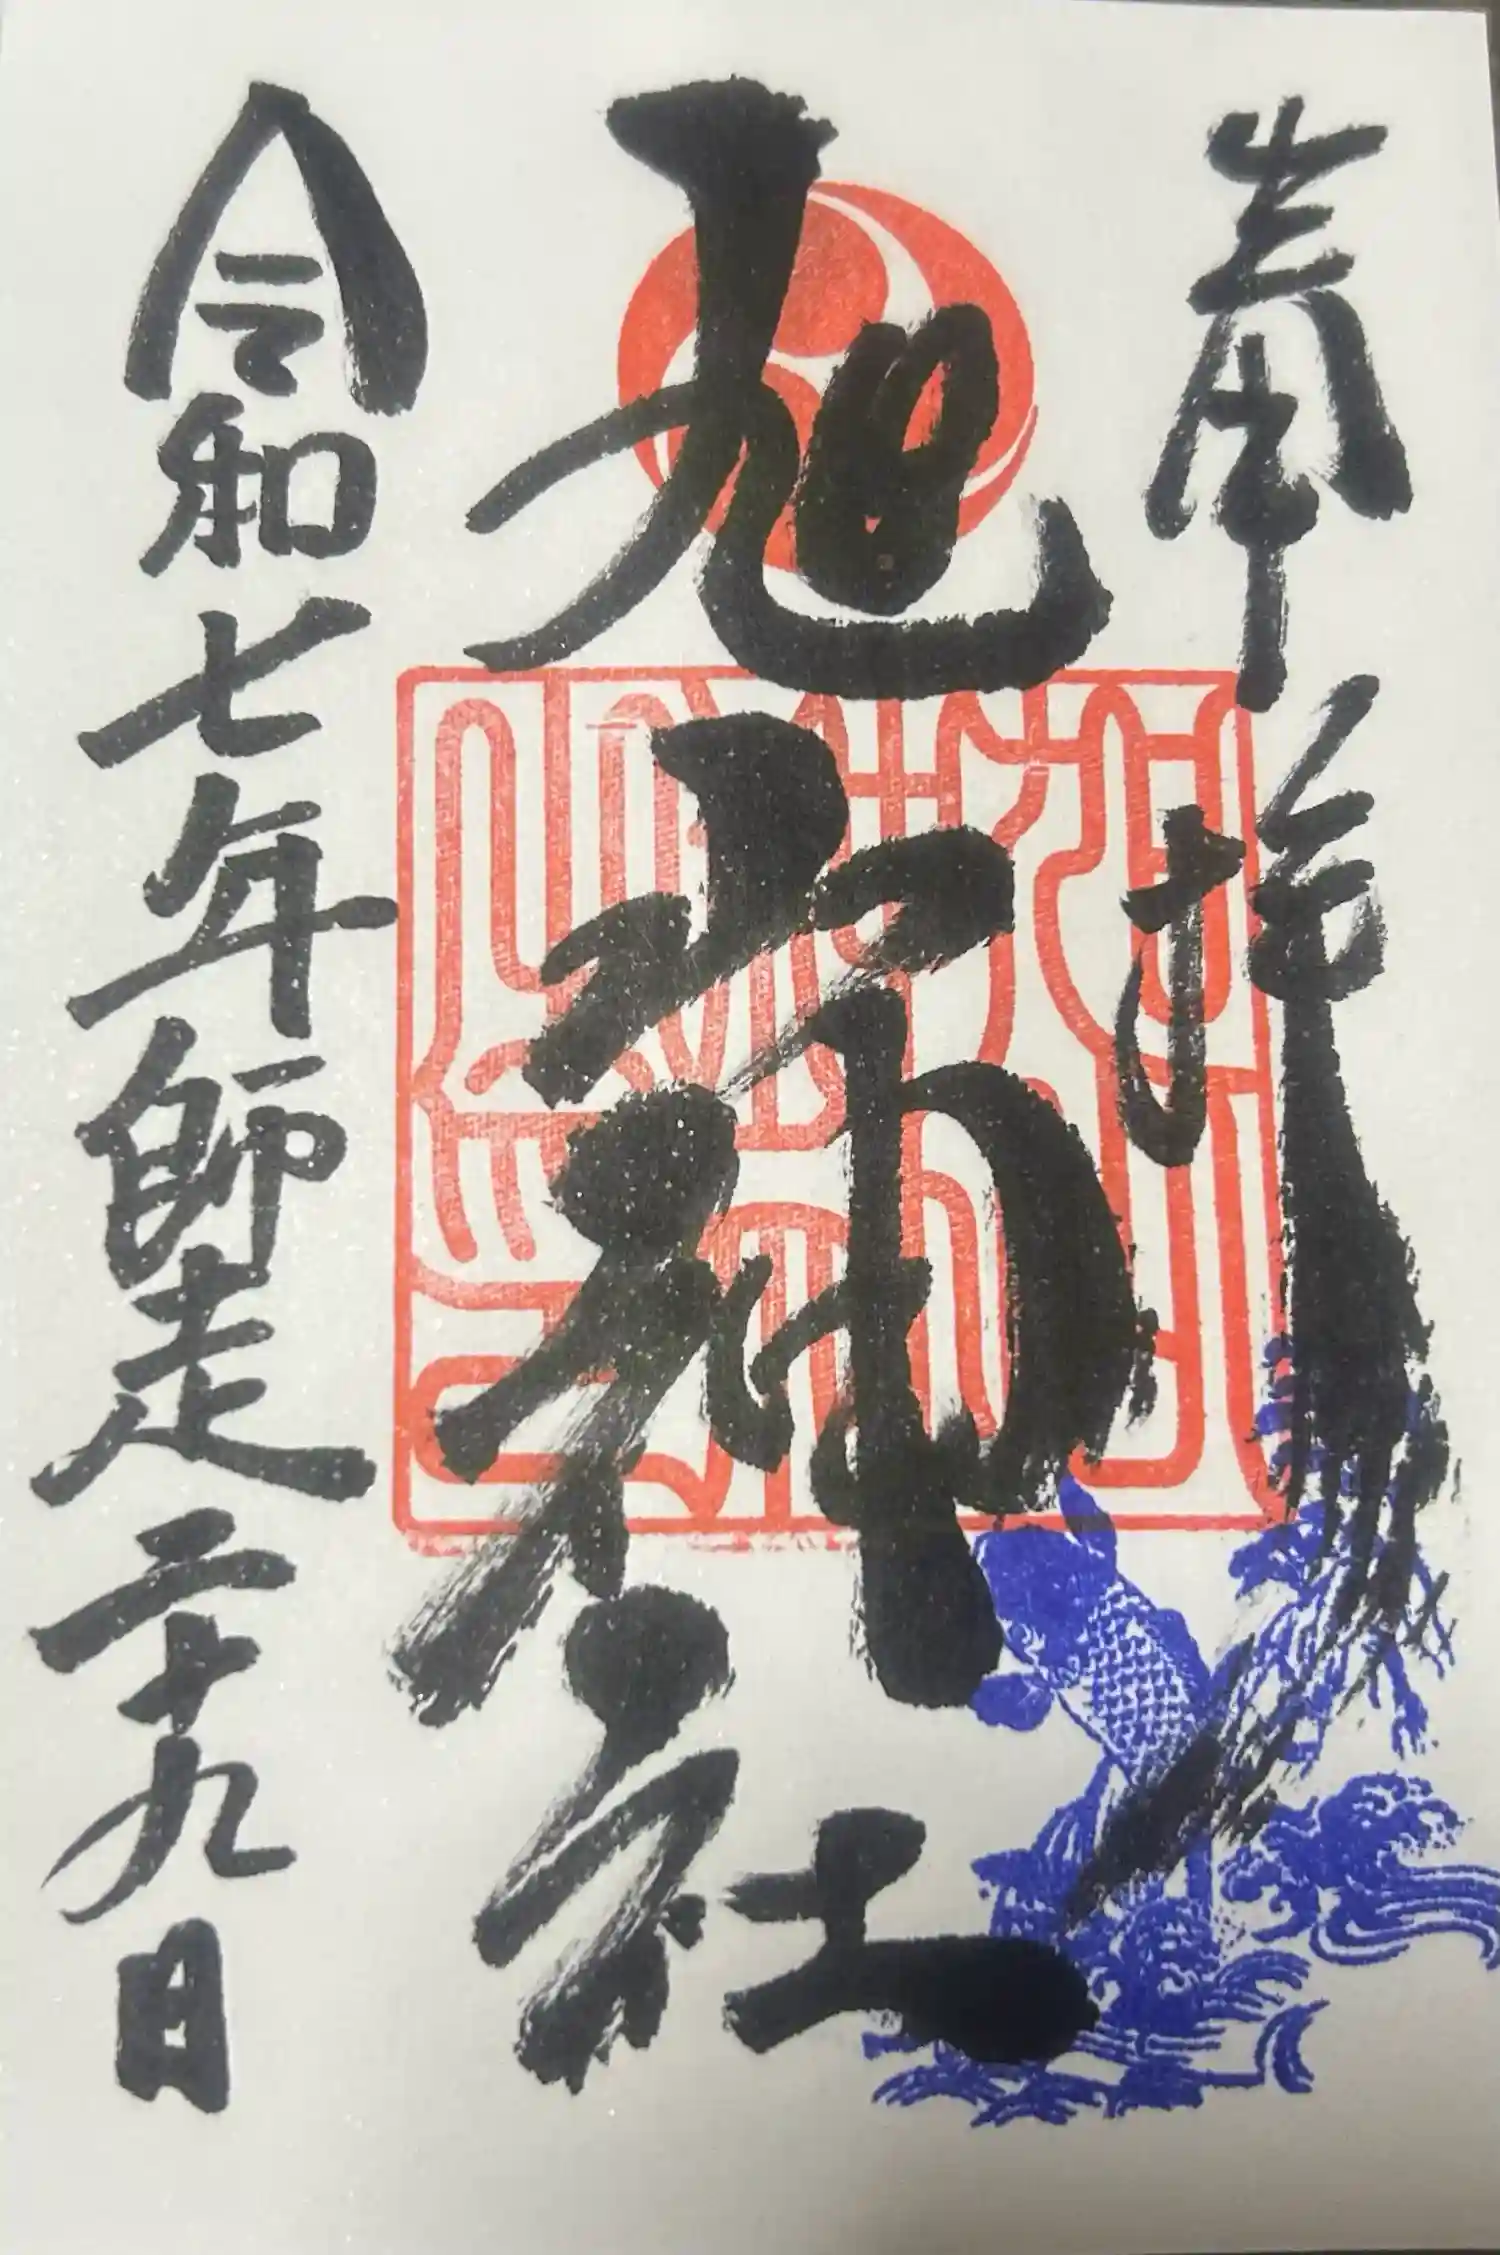 奉拝
旭神社
令和七年師走二十九日